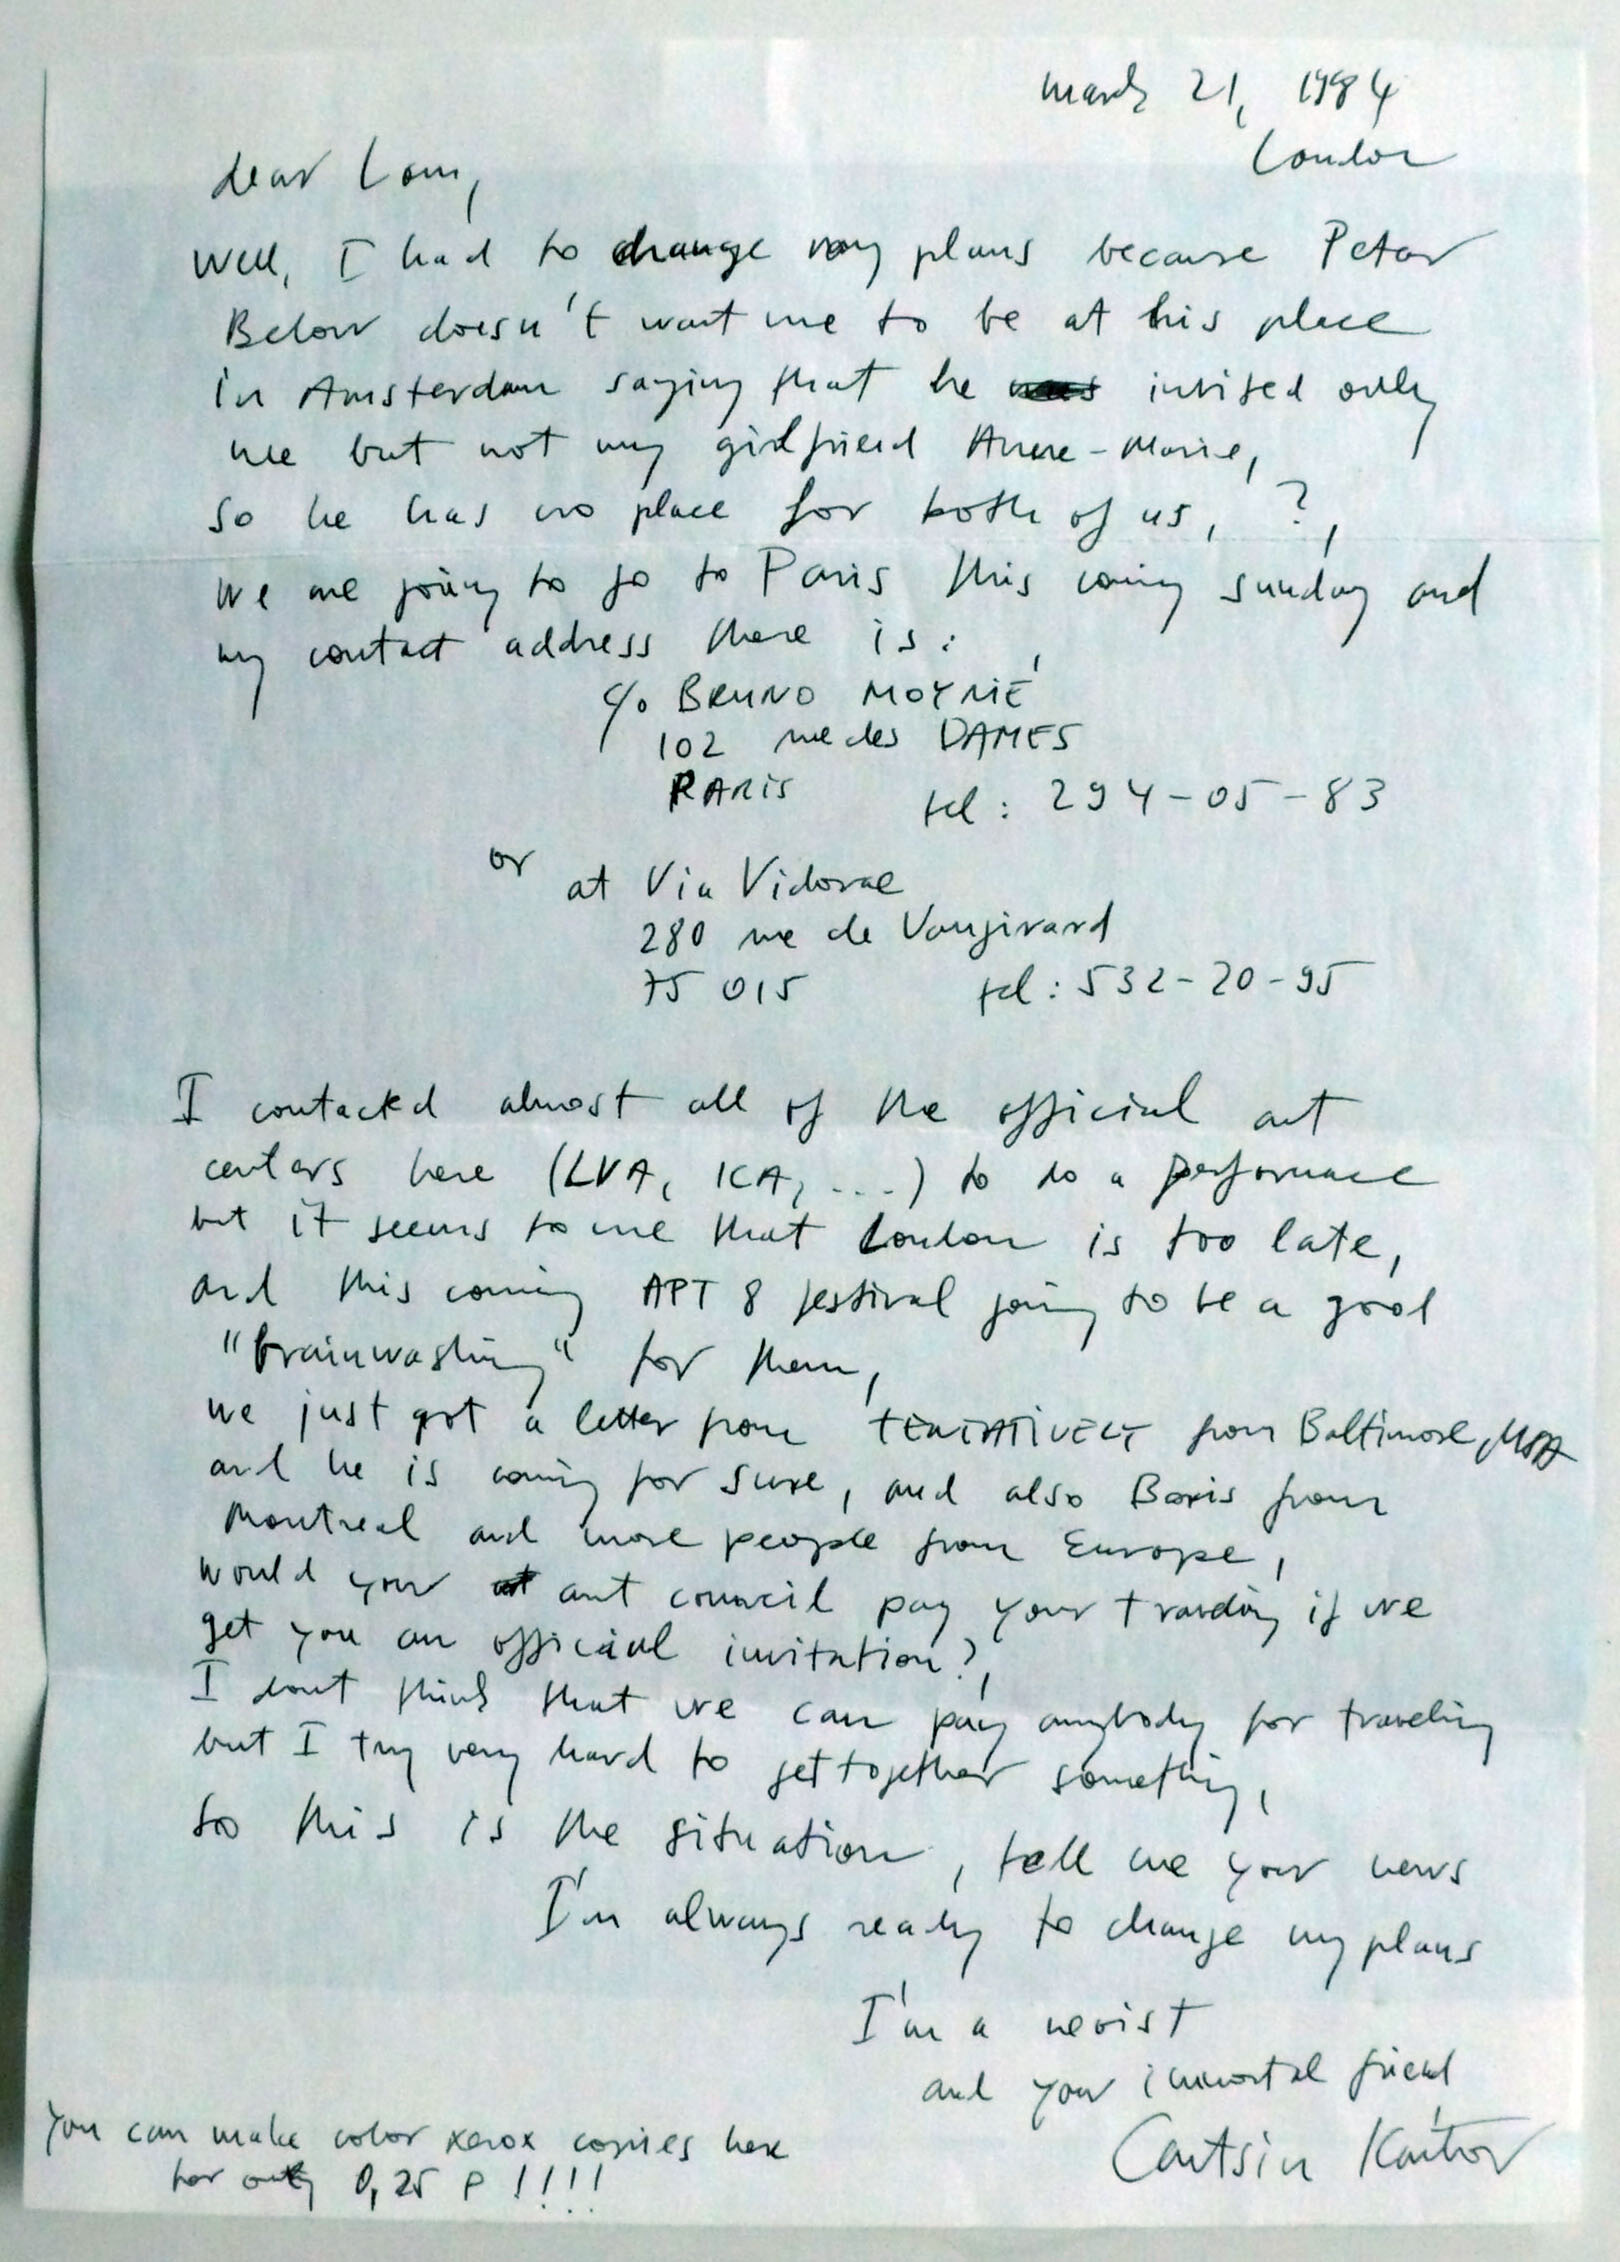 march 21, 1984
London
dear Lou,
Well, I had to change my plans because Peter
Below doesn't want me to be at his place
in Amsterdam saying that he invited only
me but not my girlfriend Anne-Marie,
so he has no place for both of us, ?,
we are going to go to Paris this coming sunday and
my contact address there is:
c/o BRUNO MOYNIÉ
102 rue des DAMES
PARIS tel: 294-05-83
or at Via Vidorae
280 rue de Vaugirard
75 015 tel: 532-20-95
I contacted almost all of the official art
centers here (LVA, ICA, ....) to do a performace
but it seems to me that London is too late,
and this coming APT 8 festival going to be a good
"brainwashing" for them,
we just got a letter from TENTATIVELY from Baltimore,
and he is coming for sure, and also Boris from
Montreal and more people from Europe,
would your art council pay your traveling if we
get you an official invitation?,
I dont think that we can pay anybody for traveling
but I try very hard to get together something,
so this is the situation, tell me your news
I'm always ready to change my plans
I'm a neoist
and your immortal friend
Cantsin Kántor
You can make color xerox copies here
for only 0,25 P !!!!